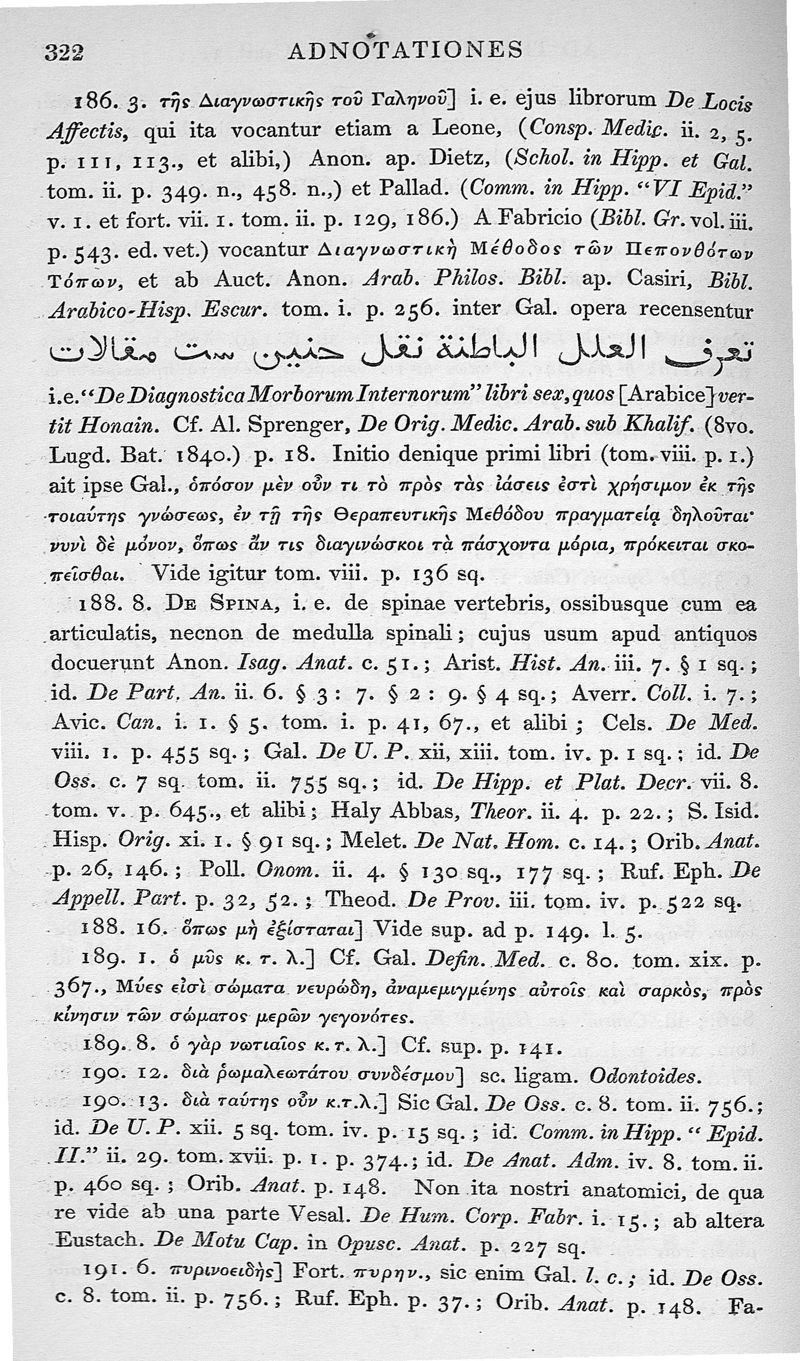 322 ADNOTATIONES
186. 3. τῆς Διαγνωστικῆς τοῦ Γαληνοῦ] i. e. ejus librorum De Locis
Affectis, qui ita vocantur etiam a Leone, (Consp. Medic. ii. 2, 5.
p. 111, 113., et alibi,) Anon. ap. Dietz, (Schol. in Hipp. et Gal.
tom. ii. p. 349. n., 458. n.,) et Pallad. (Comm. in Hipp. “VI Epid.”
v. 1. et fort. vii. 1. tom. ii. p. 129, 186.) A Fabricio (Bibl. Gr. vol. iii.
p. 543. ed. vet.) vocantur Διαγνωστικὴ Μέθοδος τῶν Πεπονθότων
Τόπων, et ab Auct. Anon. Arab. Philos. Bibl. ap. Casiri, Bibl.
Arabico-Hisp. Escur. tom. i. p. 256. inter Gal. opera recensentur
تعرف العلل الباطنة نقل حنين ست مقالات
i.e. “De Diagnostica Morborum Internorum” libri sex, quos [Arabice] ver-
tit Honain. Cf. Al. Sprenger, De Orig. Medic. Arab. sub Khalif. (8vo.
Lugd. Bat. 1840.) p. 18. Initio denique primi libri (tom. viii. p. 1.)
ait ipse Gal., ὁπόσον μὲν οὖν τι τὸ πρὸς τὰς ἰάσεις ἐστὶ χρήσιμον ἐκ τῆς
τοιαύτης γνώσεως, ἐν τῇ τῆς Θεραπευτικῆς Μεθόδου πραγματείᾳ δηλοῦται·
νυνὶ δὲ μόνον, ὅπως ἄν τις διαγινώσκοι τὰ πάσχοντα μόρια, πρόκειται σκο-
πεῖσθαι. Vide igitur tom. viii. p. 136 sq.
188. 8. De Spina, i. e. de spinae vertebris, ossibusque cum ea
articulatis, necnon de medulla spinali; cujus usum apud antiquos
docuerunt Anon. Isag. Anat. c. 51.; Arist. Hist. An. iii. 7. § 1 sq.;
id. De Part. An. ii. 6. § 3: 7. § 2: 9. § 4 sq.; Averr. Coll. i. 7.;
Avic. Can. i. 1. § 5. tom. i. p. 41, 67., et alibi; Cels. De Med.
viii. 1. p. 455 sq.; Gal. De U. P. xii, xiii. tom. iv. p. 1 sq.; id. De
Oss. c. 7 sq. tom. ii. 755 sq.; id. De Hipp. et Plat. Decr. vii. 8.
tom. v. p. 645., et alibi; Haly Abbas, Theor. ii. 4. p. 22.; S. Isid.
Hisp. Orig. xi. 1. § 91 sq.; Melet. De Nat. Hom. c. 14.; Orib. Anat.
p. 26, 146.; Poll. Onom. ii. 4. § 130 sq., 177 sq.; Ruf. Eph. De
Appell. Part. p. 32, 52.; Theod. De Prov. iii. tom. iv. p. 522 sq.
188. 16. ὅπως μὴ ἐξίσταται] Vide sup. ad p. 149. l. 5.
189. 1. ὁ μῦς κ. τ. λ.] Cf. Gal. Defin. Med. c. 80. tom. xix. p.
367., Μύες εἰσὶ σώματα νευρώδη, ἀναμεμιγμένης αὐτοῖς καὶ σαρκὸς, πρὸς
κίνησιν τῶν σώματος μερῶν γεγονότες.
189. 8. ὁ γὰρ νωτιαῖος κ. τ. λ.] Cf. sup. p. 141.
190. 12. διὰ ῥωμαλεωτάτου συνδέσμου] sc. ligam. Odontoides.
190. 13. διὰ ταύτης οὖν κ.τ.λ.] Sic Gal. De Oss. c. 8. tom. ii. 756.;
id. De U. P. xii. 5 sq. tom. iv. p. 15 sq.; id. Comm. in Hipp. “Epid.
II.” ii. 29. tom. xvii. p. 1. p. 374.; id. De Anat. Adm. iv. 8. tom. ii.
p. 460 sq.; Orib. Anat. p. 148. Non ita nostri anatomici, de qua
re vide ab una parte Vesal. De Hum. Corp. Fabr. i. 15.; ab altera
Eustach. De Motu Cap. in Opusc. Anat. p. 227 sq.
191. 6. πυρινοειδὴς] Fort. πυρην., sic enim Gal. l. c.; id. De Oss.
c. 8. tom. ii. p. 756.; Ruf. Eph. p. 37.; Orib. Anat. p. 148. Fa-